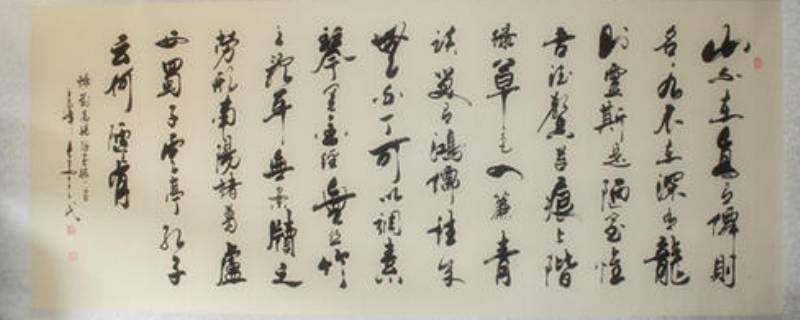 山不在高有僊則
名水不在深有龍
則靈斯是陋室惟
吾德馨苔痕上階
綠草色入簾青
談笑有鴻儒往來
無白丁可以調素
琴閱金經無絲竹
之亂耳無案牘之
勞形南陽諸葛廬
西蜀子雲亭孔子
云何陋有
錄劉禹錫陋室銘